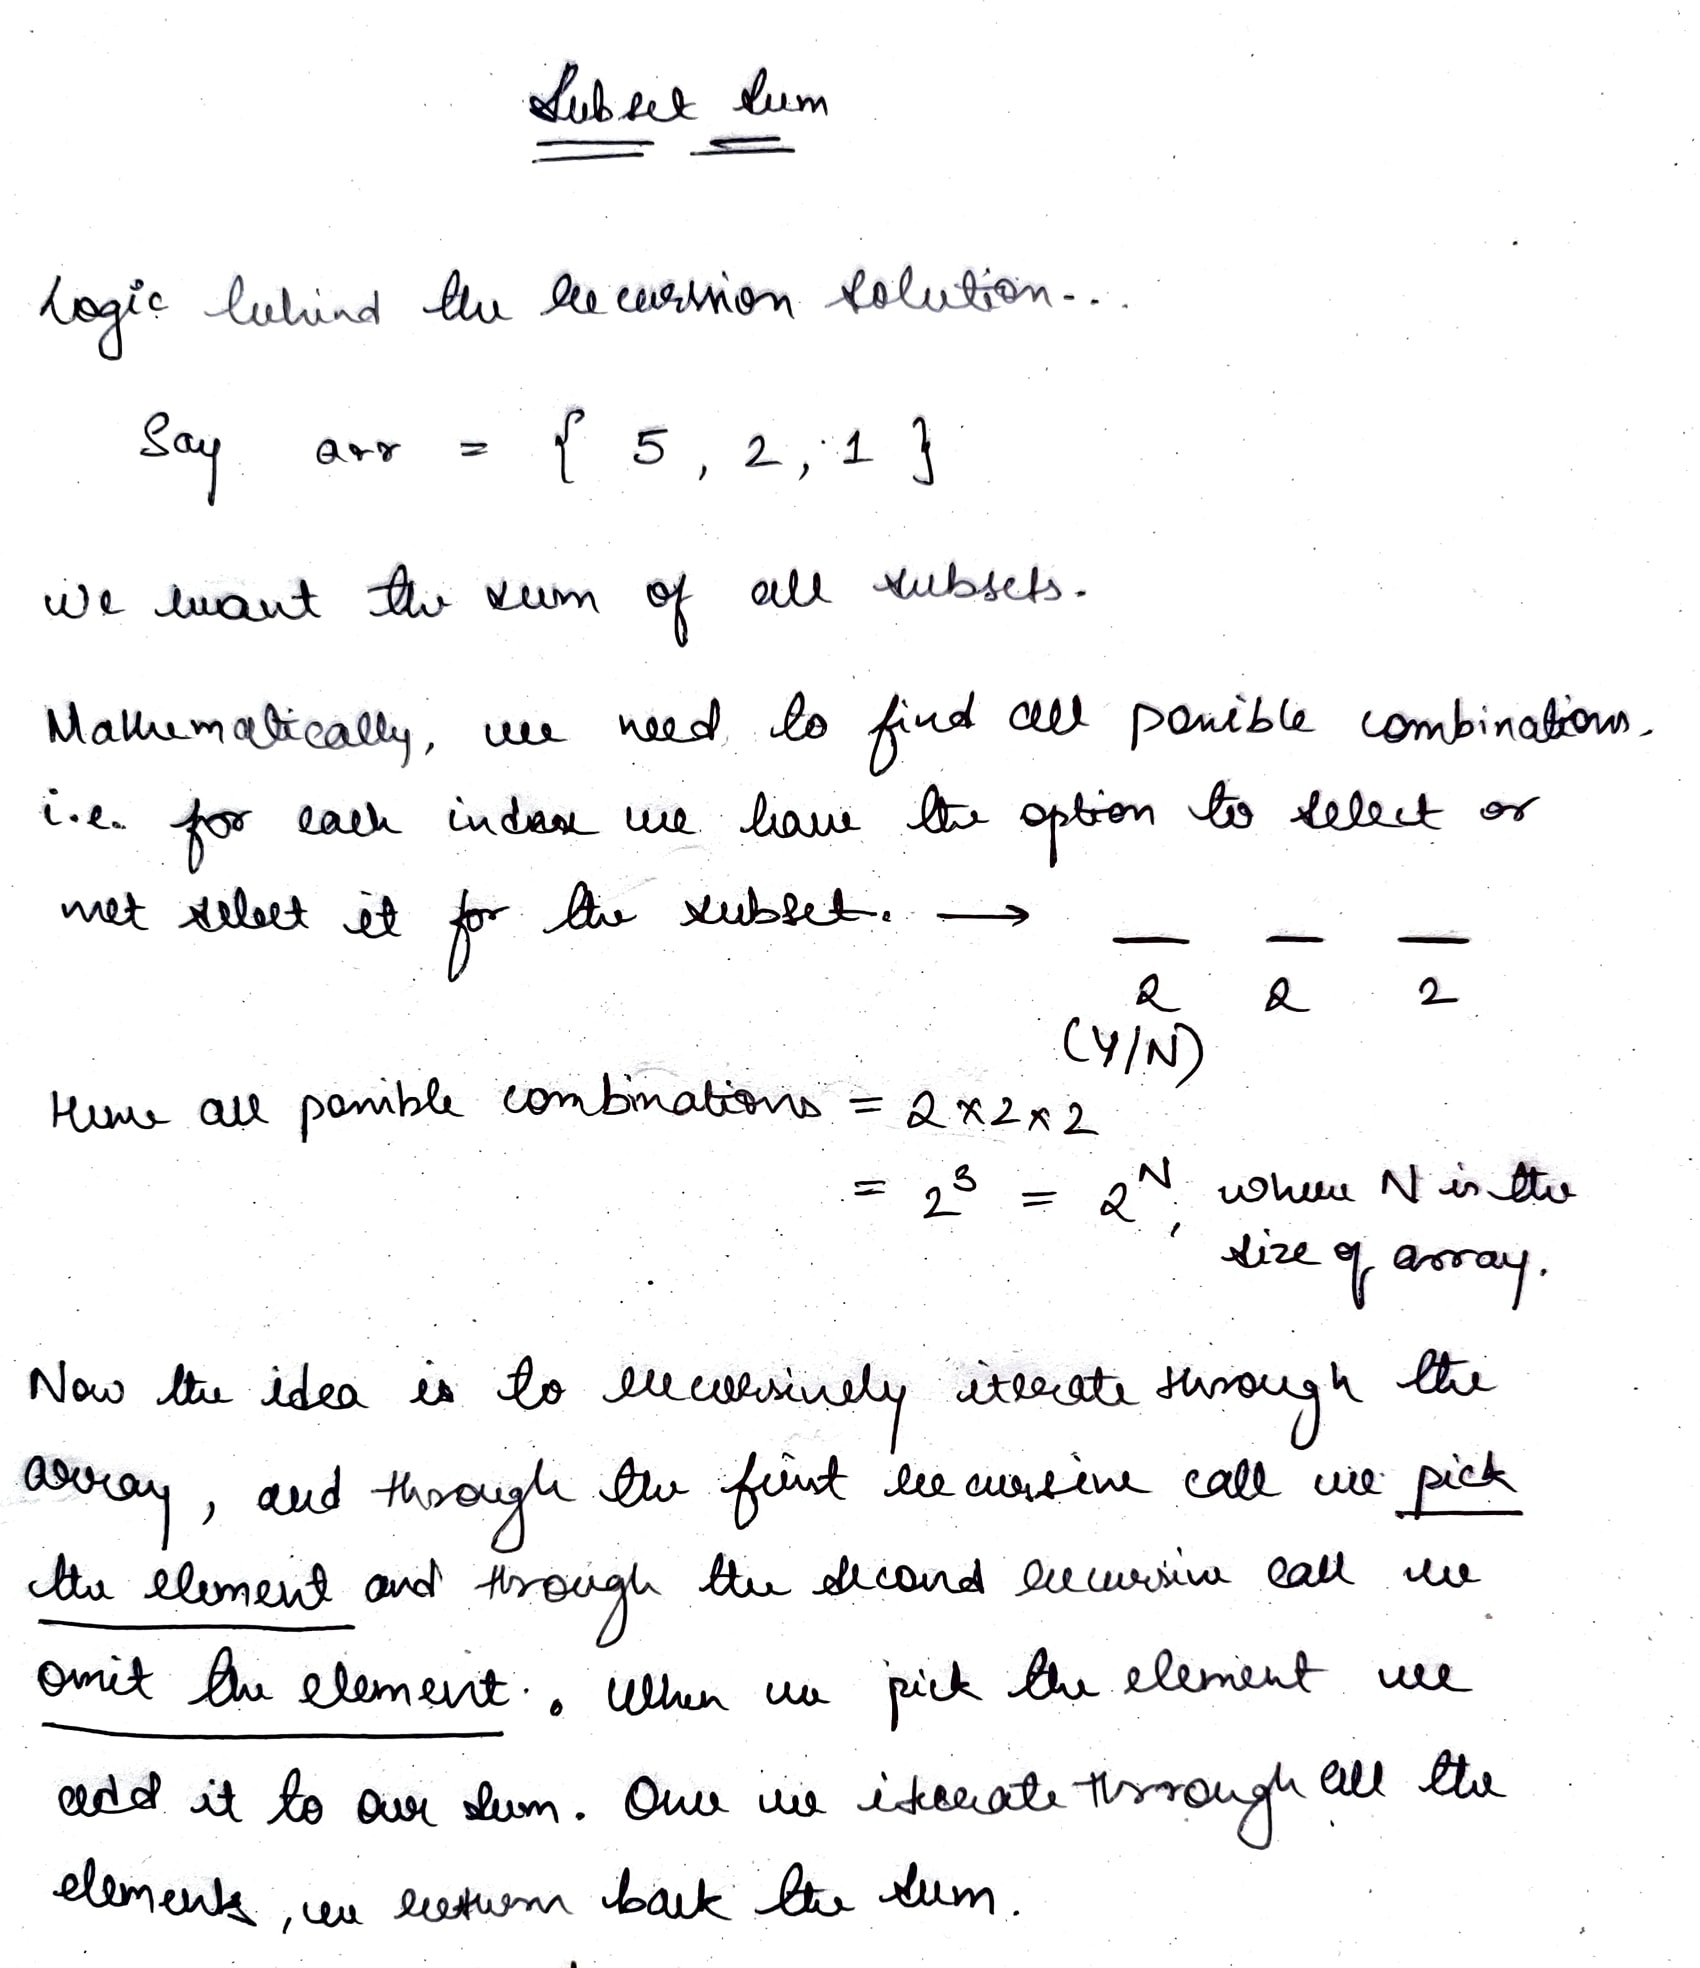 Subset Sum
Logic behind the recursion solution...
Say arr = { 5, 2, 1 }
We want the sum of all subsets.
Mathematically, we need to find all possible combinations.
i.e. for each index we have the option to select or
not select it for the subset. → _ _ _
2 2 2
(Y/N)
Hence all possible combinations = 2 × 2 × 2
= 2³ = 2ᴺ, where N is the
size of array.
Now the idea is to recursively iterate through the
array, and through the first recursive call we pick
the element and through the second recursive call we
omit the element. When we pick the element we
add it to our sum. Once we iterate through all the
elements, we return back the sum.